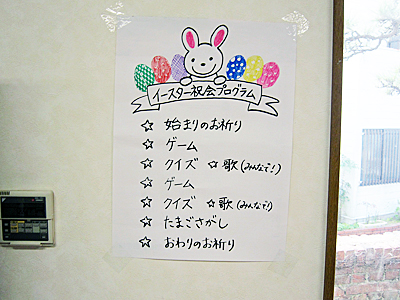 イースター祝会プログラム
☆ 始まりのお祈り
☆ ゲーム
☆ クイズ ☆ 歌(みんなで!)
☆ ゲーム
☆ クイズ ☆ 歌(みんなで!)
☆ たまごさがし
☆ おわりのお祈り